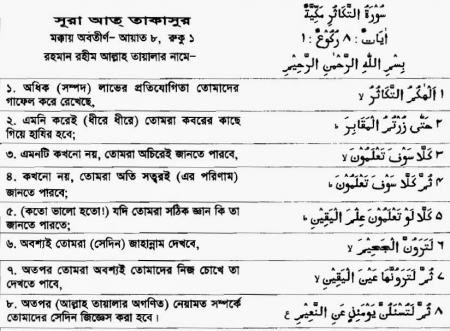 সূরা আত্ তাকাসুর
মক্কায় অবতীর্ণ- আয়াত ৮, রুকু ১
রহমান রহীম আল্লাহ তায়ালার নামে-
سُوْرَةُ التَّكَاثُرِ مَكِّيَّةٌ
اٰيَاتُ : ٨ رُكُوْعُ : ١
بِسْمِ اللّٰهِ الرَّحْمٰنِ الرَّحِيْمِ
১. অধিক (সম্পদ) লাভের প্রতিযোগিতা তোমাদের
গাফেল করে রেখেছে,
١ اَلْهٰىكُمُ التَّكَاثُرُ ۙ
২. এমনি করেই (ধীরে ধীরে) তোমরা কবরের কাছে
গিয়ে হাযির হবে;
٢ حَتّٰى زُرْتُمُ الْمَقَابِرَ ؕ
৩. এমনটি কখনো নয়, তোমরা অচিরেই জানতে পারবে,
٣ كَلَّا سَوْفَ تَعْلَمُوْنَ ۙ
৪. কখনো নয়, তোমরা অতি সত্ত্বরই (এর পরিণাম)
জানতে পারবে;
٤ ثُمَّ كَلَّا سَوْفَ تَعْلَمُوْنَ ؕ
৫. (কতো ভালো হতো!) যদি তোমরা সঠিক জ্ঞান কি তা
জানতে পারতে;
٥ كَلَّا لَوْ تَعْلَمُوْنَ عِلْمَ الْيَقِيْنِ ؕ
৬. অবশ্যই তোমরা (সেদিন) জাহান্নাম দেখবে,
٦ لَتَرَوُنَّ الْجَحِيْمَ ۙ
৭. অতপর তোমরা অবশ্যই তোমাদের নিজ চোখে তা
দেখতে পাবে,
٧ ثُمَّ لَتَرَوُنَّهَا عَيْنَ الْيَقِيْنِ ۙ
৮. অতপর (আল্লাহ তায়ালার অগণিত) নেয়ামত সম্পর্কে
তোমাদের সেদিন জিজ্ঞেস করা হবে।
٨ ثُمَّ لَتُسْـَٔلُنَّ يَوْمَئِذٍ عَنِ النَّعِيْمِ ع